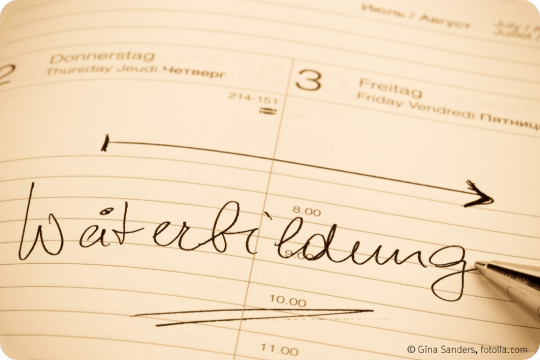 Июль / Август
July / A
Juillet /
2 Donnerstag
Thursday Jeudi Четверг
214-151
3 Freitag
Friday Vendredi Пятница
8.00
Weiterbildung
9.00
10.00
11.00
© Gina Sanders, fotolia.com